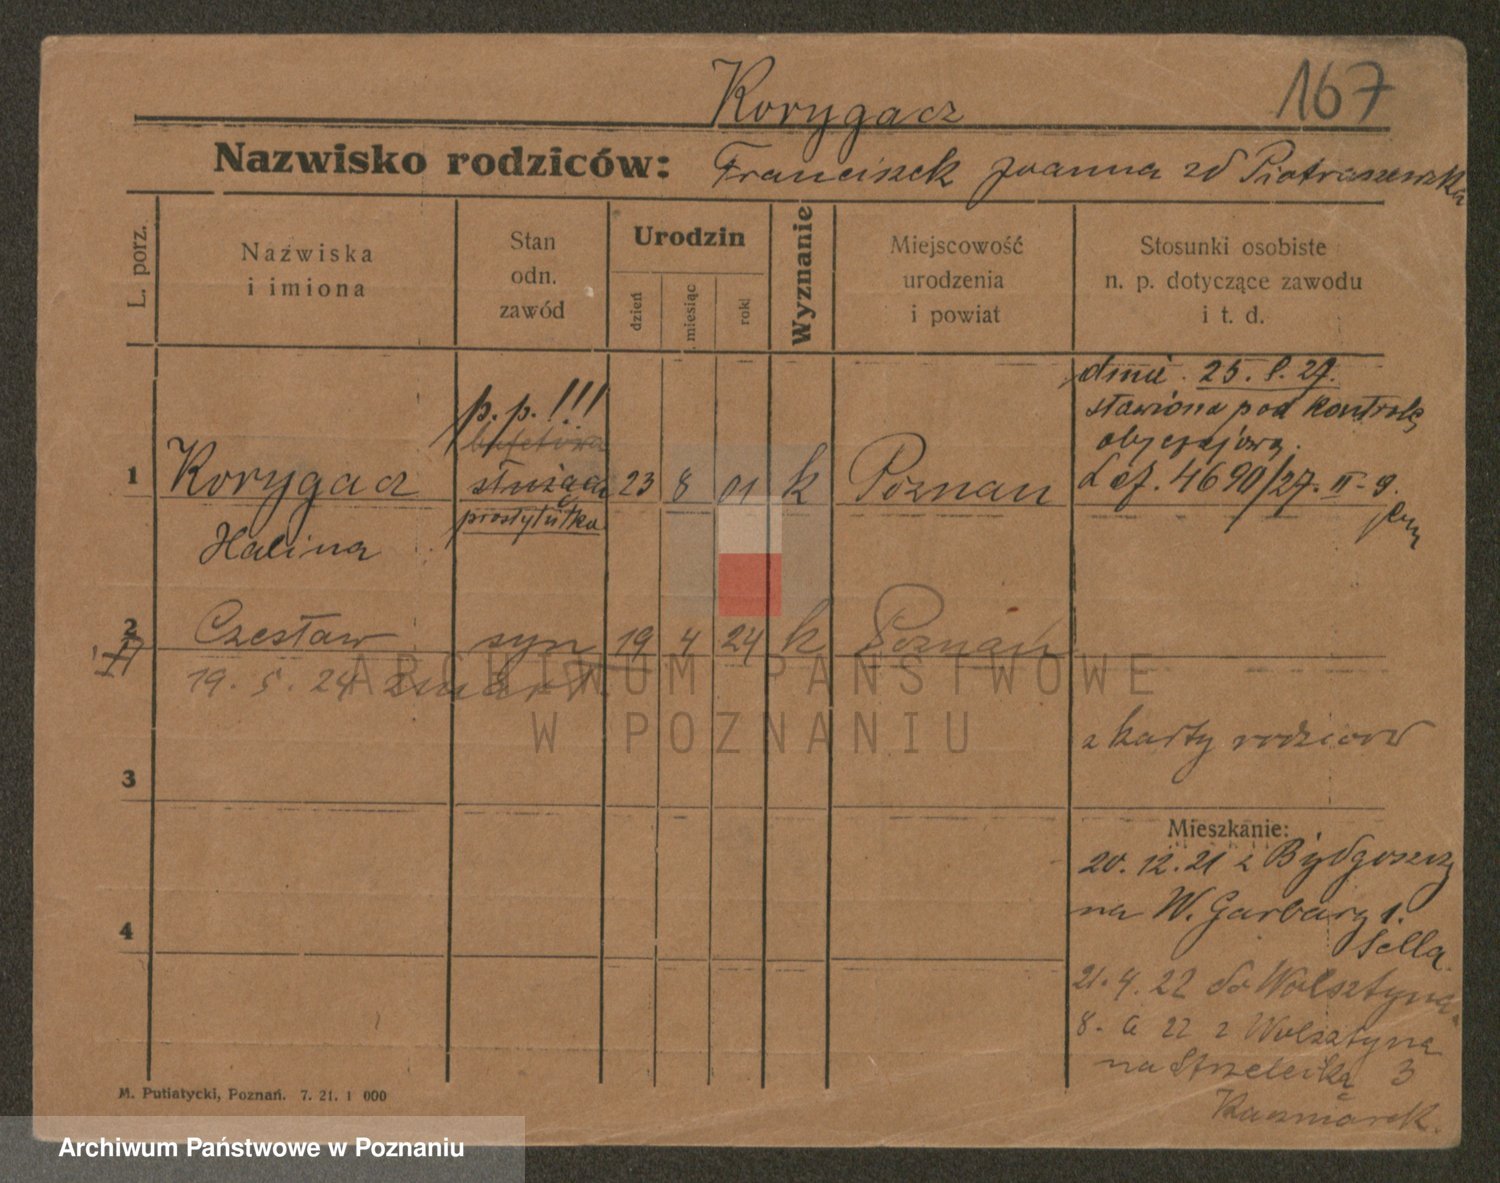 Korygacz
167
Nazwisko rodziców: Franciszek Joanna zd Piotraszewska
L. porz.
Nazwiska
i imiona
Stan
odn.
zawód
Urodzin
dzień
miesiąc
rok
Wyznanie
Miejscowość
urodzenia
i powiat
Stosunki osobiste
n. p. dotyczące zawodu
i t. d.
dnia 25. 8. 27.
stawiona pod kontrolę
obyczajową.
L of. 4690/27. II-9.
p. p. !!!
bufetowa
1 Korygacz służąca 23 8 01 k Poznań
prostytutka
Halina
2 Czesław syn 19 4 24 k Poznań
19. 5. 24 zmarł
z karty rodziców
3
Mieszkanie:
20. 12. 21 z Bydgoszczy
na W. Garbary 1.
Sella.
4
21. 4. 22 do Wolsztyna
8. 6 22 z Wolsztyna
na Strzelecką 3
Kaczmarek.
M. Putiatycki, Poznań. 7. 21. 1 000
ARCHIWUM PAŃSTWOWE
W POZNANIU
Archiwum Państwowe w Poznaniu